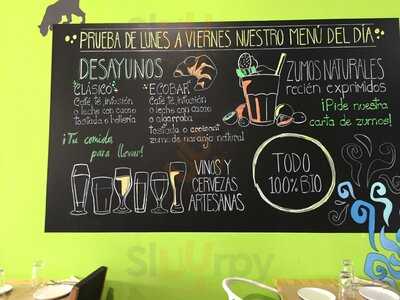 PRUEBA DE LUNES A VIERNES NUESTRO MENÚ DEL DÍA
DESAYUNOS
CLÁSICO
Café, té, infusión
o leche con cacao
tostada o bollería
ECOBAR
Café, té, infusión
o leche con cacao
o algarroba
tostada o croissant
zumo de naranja natural
¡Tu comida
para llevar!
ZUMOS NATURALES
recién exprimidos
¡Pide nuestra
carta de zumos!
VINOS Y
CERVEZAS
ARTESANAS
TODO
100% BIO
Sluurpy